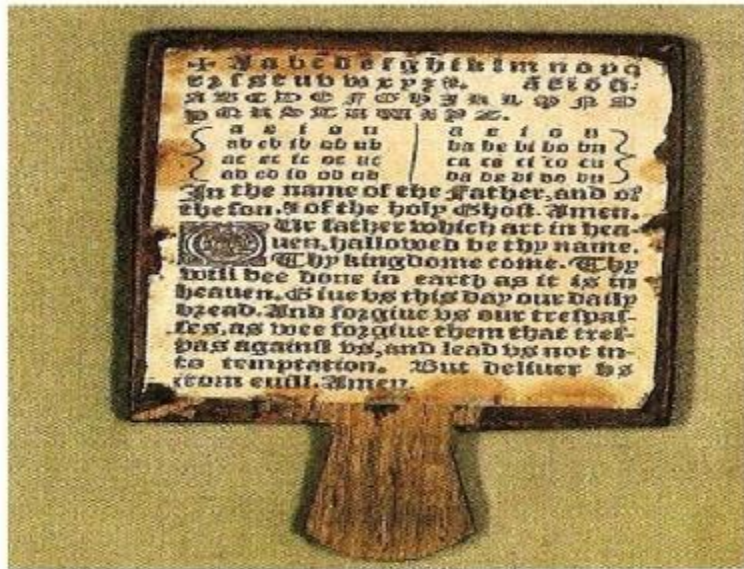 + A a b c d e f g h i k l m n o p q
r ꝛ ſ s t u v w x y z &. a e i o u.
A B C D E F G H I K L M N O
P Q R S T U W X Y Z.
a e i o u a e i o u
ab eb ib ob ub ba be bi bo bu
ac ec ic oc uc ca ce ci co cu
ad ed id od ud da de di do du
In the name of the Father, and of
the ſon, & of the holy Ghoſt. Amen.
OUr father which art in hea-
uen, hallowed be thy name.
Thy kingdome come. Thy
will bee done in earth as it is in
heauen. Giue vs this day our daily
bread. And forgiue vs our treſpaſ-
ſes, as wee forgiue them that treſ-
pas againſt vs, and lead vs not in-
to temptation. But deliuer vs
from euill. Amen.